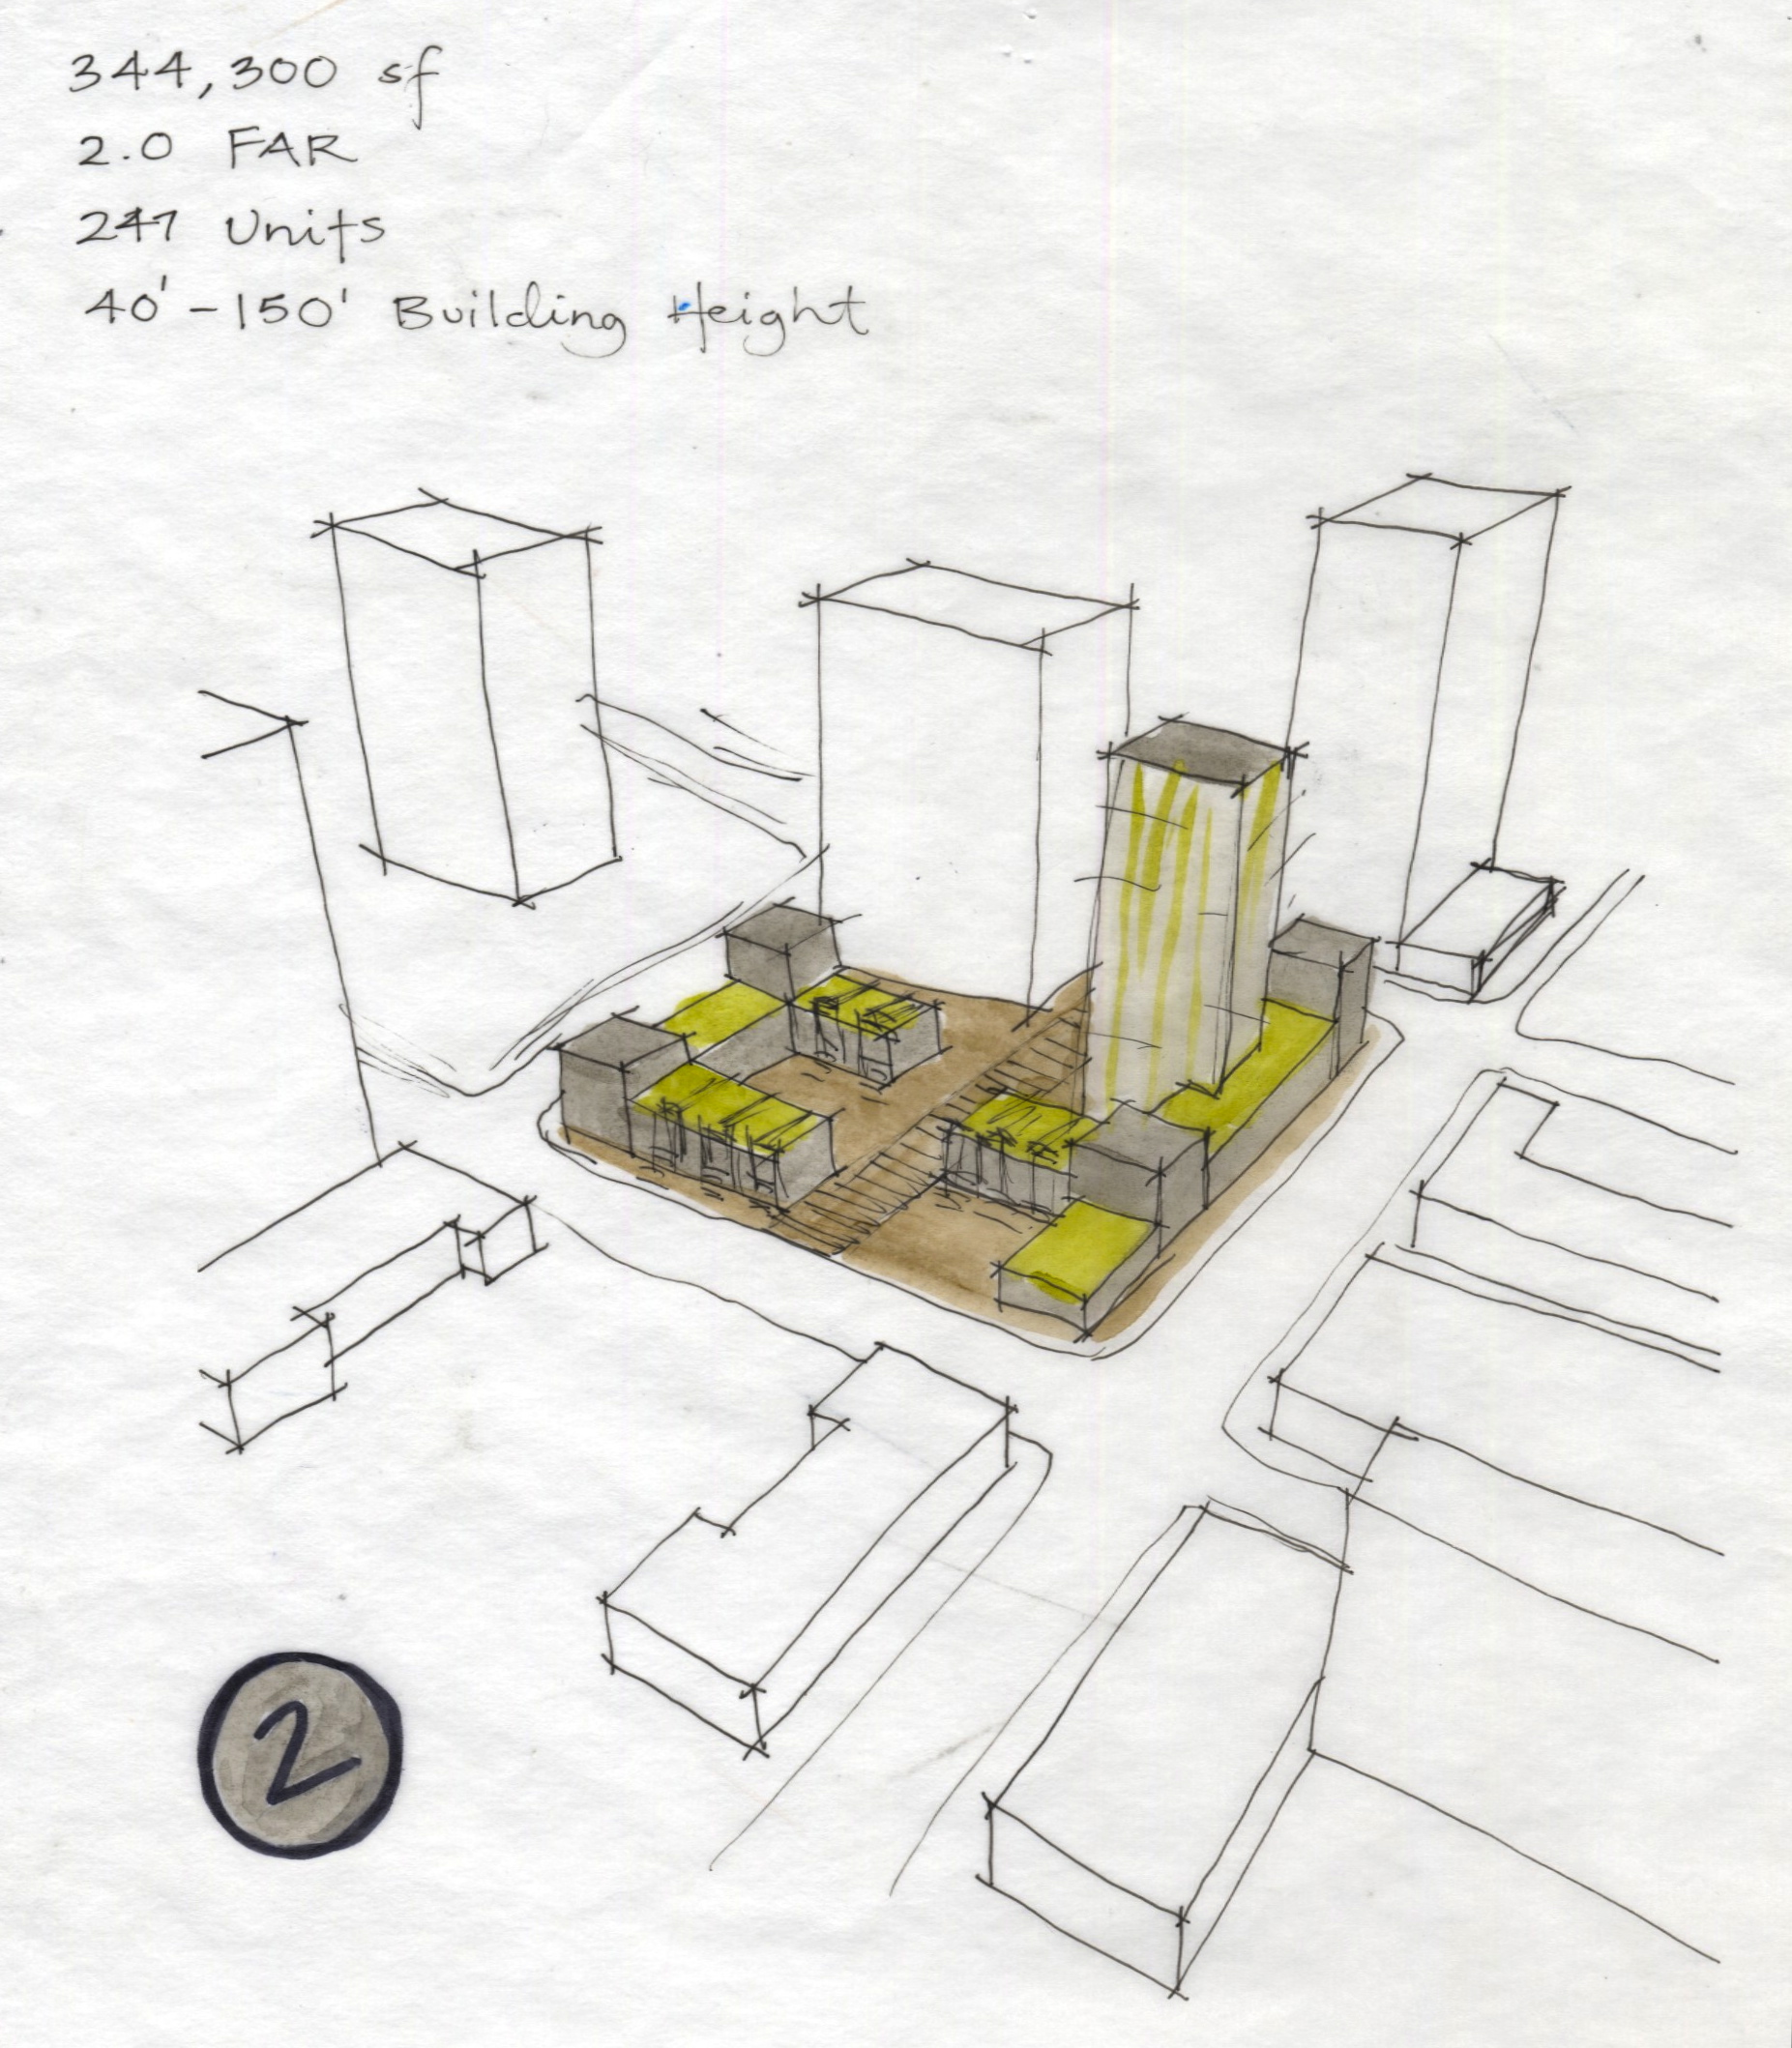 344,300 sf
2.0 FAR
247 Units
40' - 150' Building Height
2